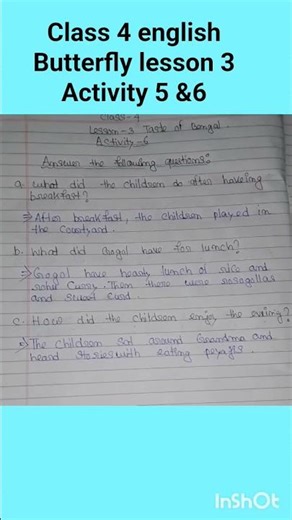 Class 4 english
Butterfly lesson 3
Activity 5 &6
Class-4
Lesson-3 Taste of Bengal
Activity-6
Answer the following questions:
a. what did the children do after having
breakfast?
⇒ After breakfast, the children played in
the Courtyard.
b. What did Gogol have for lunch?
⇒ Gogol have heavy lunch of rice and
Then there were rosogollas
and sweet curd.
c. How did the children enjoy the evening?
⇒ The children sat around Grandma and
heard stories with eating
InShOt